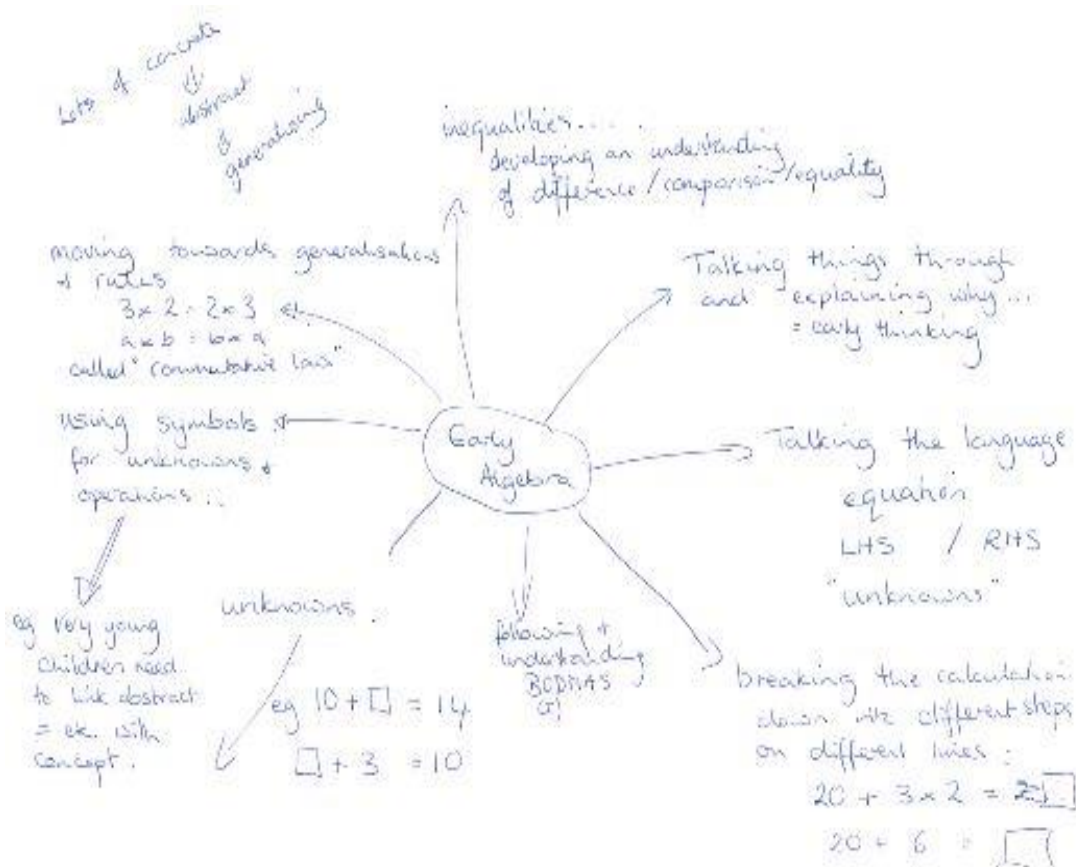 Lots of concrete
abstract
generalising
inequalities.....
developing an understanding
of difference / comparison / equality
moving towards generalisations
+ rules
3 × 2 = 2 × 3
a × b = b × a
called "commutative law"
Talking things through
and explaining why...
= early thinking
using symbols
for unknowns +
operations...
Early
Algebra
Talking the language
equation
LHS / RHS
"unknowns"
eg very young
children need
to link abstract
= etc. with
concept.
unknowns.
eg 10 + □ = 14
□ + 3 = 10
following +
understanding
BODMAS
breaking the calculation
down into different steps
on different lines:
20 + 3 × 2 = □
20 + 6 = □